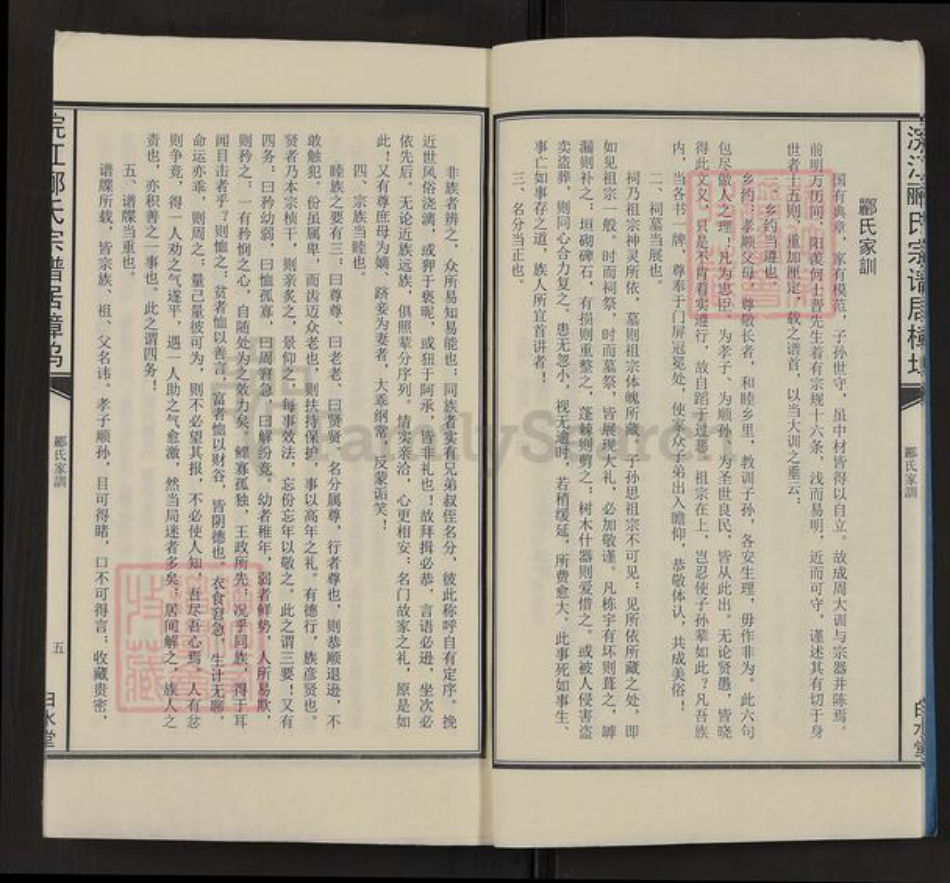 酈氏家訓
国有典章，家有模范，子孙世守，虽中材皆得以自立。故成周大训与宗器并陈焉。
前明万历间，阳羡何士晋先生着有宗规十六条，浅而易明，近而可守，谨述其有切于身
世者十五则，重加厘定，载之谱首，以当大训之垂云：
一、乡约当遵也
乡约：孝顺父母，尊敬长者，和睦乡里，教训子孙，各安生理，毋作非为。此六句
包尽做人之理！凡为忠臣、为孝子、为顺孙、为圣世良民，皆从此出。无论贤愚，皆晓
得此文义，只是不肯着实遵行，故自蹈于过恶。祖宗在上，岂忍使子孙辈如此？凡吾族
内，当各书一牌，尊奉于门屏冠冕处，使家众子弟出入瞻仰，恭敬体认，共成美俗！
二、祠墓当展也。
祠乃祖宗神灵所依，墓则祖宗体魄所藏。子孙思祖宗不可见；见所依所藏之处，即
如见祖宗一般。时而祠祭，时而墓祭，皆展现大礼，必加敬谨。凡栋宇有坏则葺之，罅
漏则补之；垣砌碑石，有损则重整之，蓬棘则剪之；树木什器则爱惜之。或被人侵害盗
卖盗葬，则同心合力复之。患无忽小，视无逾时，若稍缓延，所费愈大。此事死如事生、
事亡如事存之道，族人所宜首讲者！
三、名分当正也。
酈氏家訓
白水堂
非族者辨之，众所易知易能也；同族者实有兄弟叔侄名分，彼此称呼自有定序。挽
近世风俗浇漓，或狎于亵昵，或狃于阿承，皆非礼也！故拜揖必恭，言语必逊，坐次必
依先后。无论近族远族，俱照辈分序列。情实亲洽，心更相安；名门故家之礼，原是如
此！又有尊庶母为嫡、跻妾为妻者，大乖纲常，反蒙诟笑！
四、宗族当睦也。
睦族之要有三：曰尊尊、曰老老、曰贤贤。名分属尊，行者尊也，则恭顺退逊，不
敢触犯。份虽属卑，而齿迈众老也，则扶持保护，事以高年之礼。有德行，族彦贤也。
贤者乃本宗桢干，则亲炙之，景仰之，每事效法，忘份忘年以敬之。此之谓三要！又有
四务：曰矜幼弱，曰恤孤寡，曰周窘急，曰解纷竞。幼者稚年，弱者鲜势，人所易欺，
则矜之；一有矜悯之心，自随处为之效力矣。鳏寡孤独，王政所先；况乎同族，得于耳
闻目击者乎？则恤之；贫者恤以善言，富者恤以财谷，皆阴德也。衣食窘急，生计无聊，
命运亦乖，则周之；量己量彼可为，则不必望其报，不必使人知，吾尽吾心焉。人有忿
则争竞，得一人劝之气遂平，遇一人助之气愈激，然当局迷者多矣。居间解之，族人之
责也，亦积善之一事也。此之谓四务！
五、谱牒当重也。
谱牒所载，皆宗族、祖、父名讳。孝子顺孙，目可得睹，口不可得言；收藏贵密，
酈氏家訓
五
白水堂